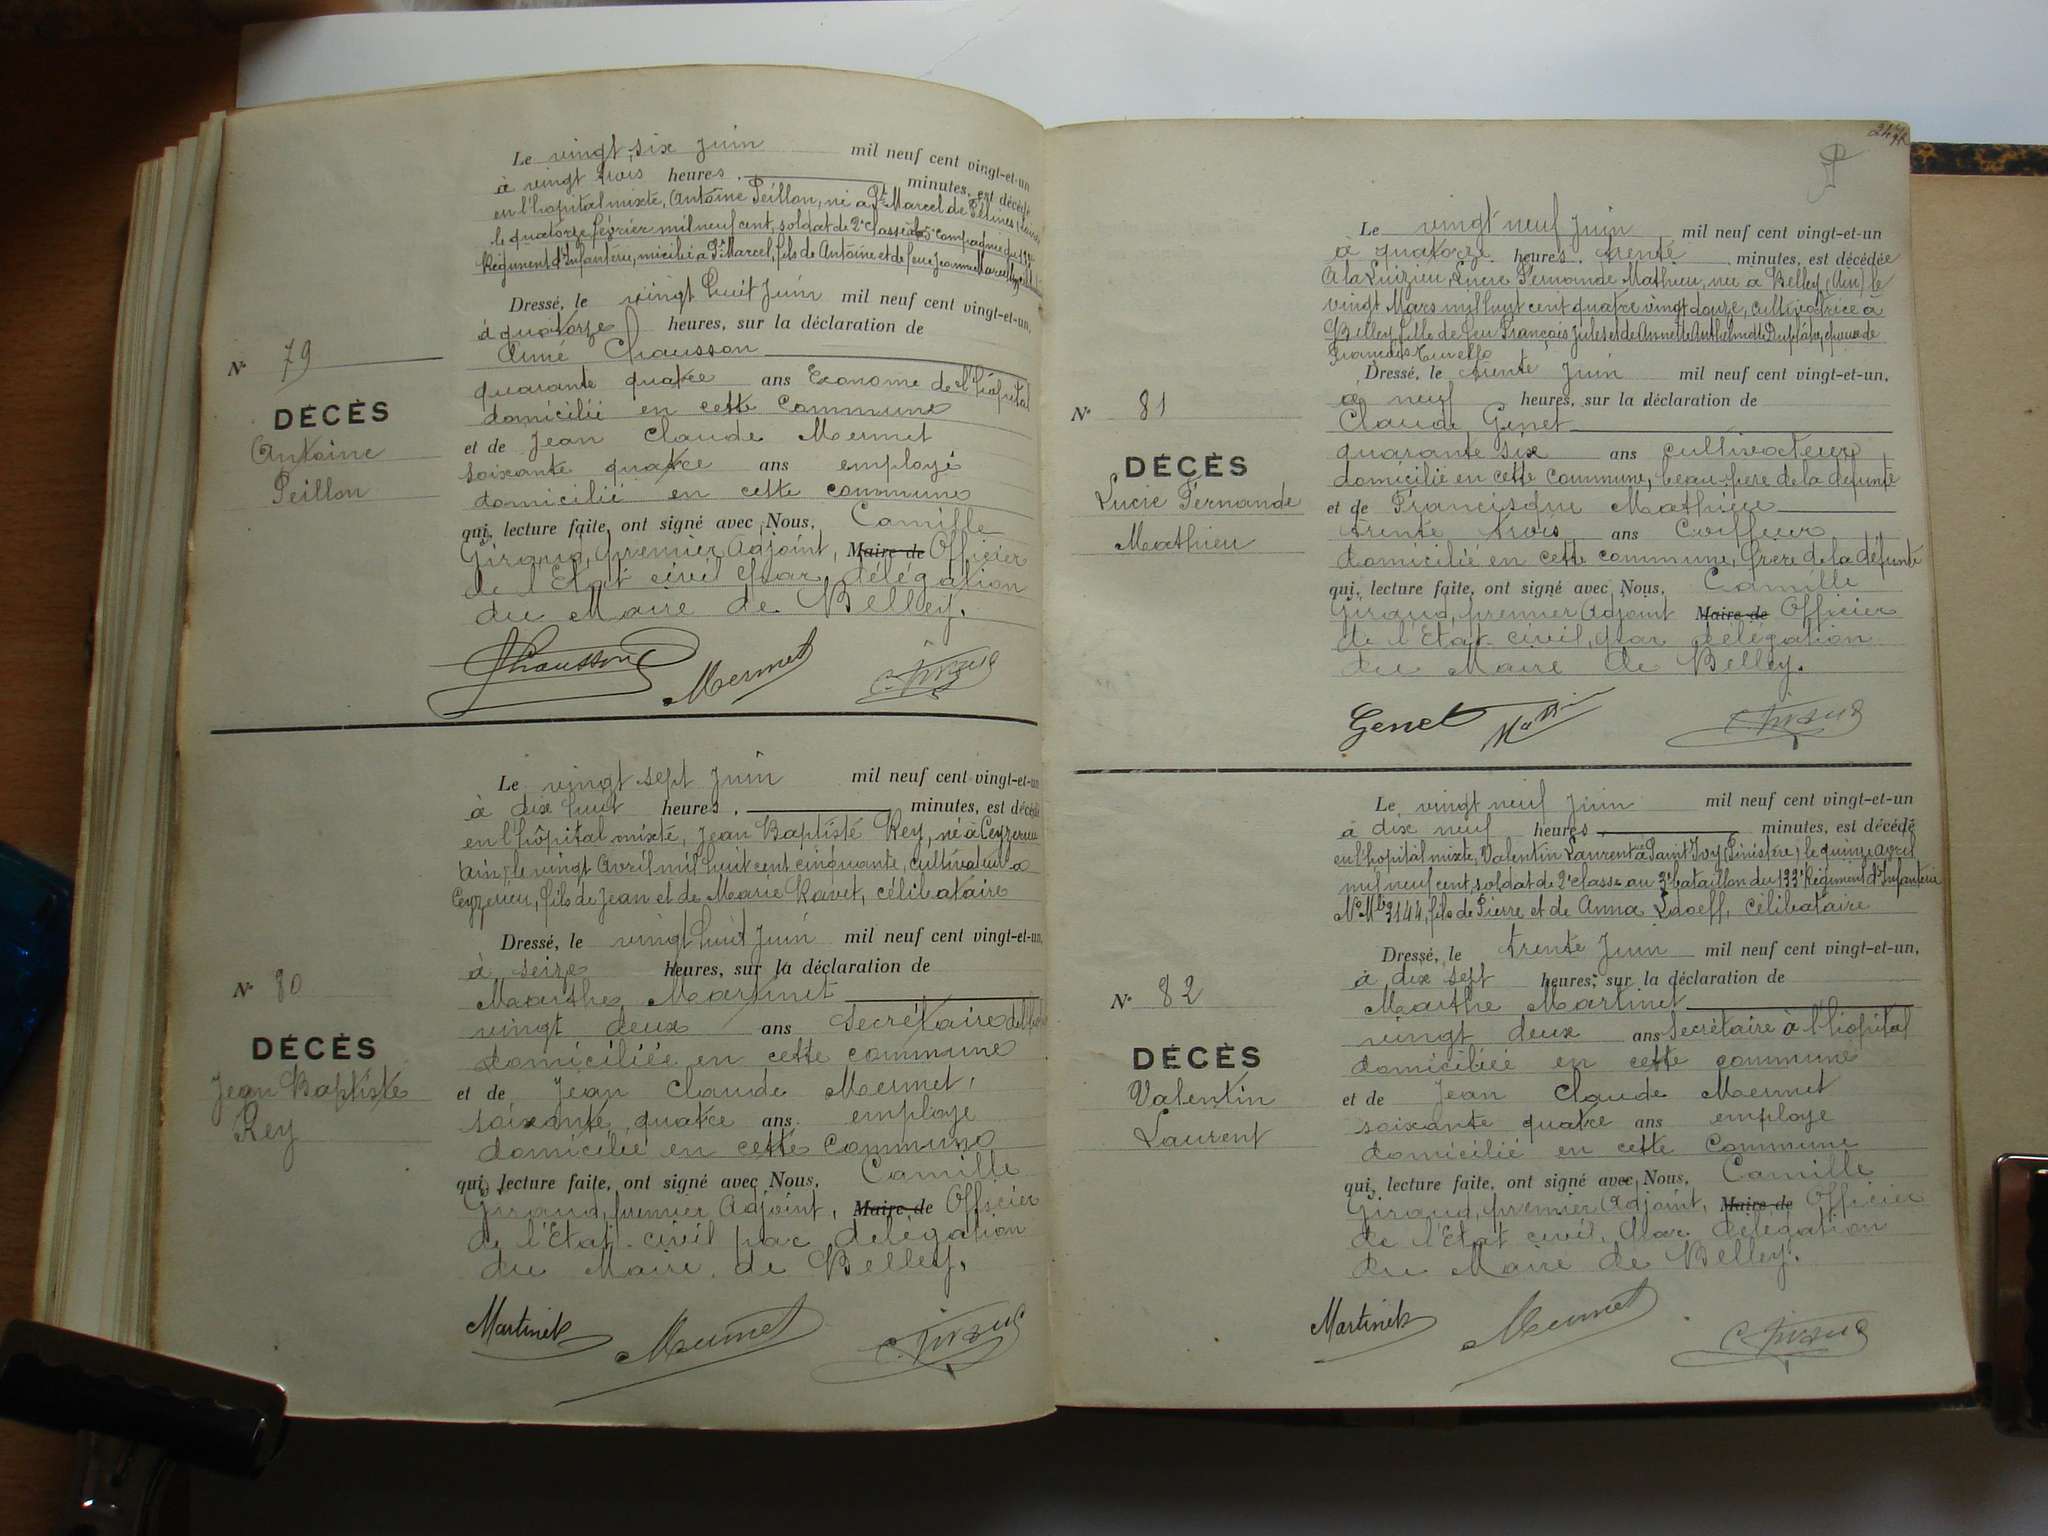 Le vingt six juin mil neuf cent vingt-et-un
à vingt trois heures minutes, est décédé
en l'hopital mixte, Antoine Peillon, né à St Marcel de Félines (Loire)
le quatorze février mil neuf cent, soldat de 2e classe 5e compagnie du
Régiment d'Infanterie, micilié à St Marcel, fils de Antoine et de feue Jeanne
Dressé, le vingt huit juin mil neuf cent vingt-et-un,
à quatorze heures, sur la déclaration de
Aimé Chausson
quarante quatre ans Econome de l'hôpital
domicilié en cette commune
et de Jean Claude Mermet
soixante quatre ans employé
domicilié en cette commune
qui, lecture faite, ont signé avec Nous, Camille
Giraud, premier Adjoint, Maire de Officier
de l'Etat civil par délégation
du Maire de Belley.
N° 79
DÉCÈS
Antoine
Peillon
Chausson Mermet C. Giraud
Le vingt sept juin mil neuf cent vingt-et-un
à dix huit heures, minutes, est décédé
en l'hôpital mixte, Jean Baptiste Rey, né à Ceyzerieu
Ain, le vingt Avril mil huit cent cinquante, cultivateur à
Ceyzerieu, fils de Jean et de Marie Ravet, célibataire
Dressé, le vingt huit juin mil neuf cent vingt-et-un,
à seize heures, sur la déclaration de
Marthe Martinet
vingt deux ans secrétaire
domiciliée en cette commune
et de Jean Claude Mermet,
soixante quatre ans employé
domicilié en cette commune
qui, lecture faite, ont signé avec Nous, Camille
Giraud, premier Adjoint, Maire de Officier
de l'Etat civil par délégation
du Maire de Belley.
N° 80
DÉCÈS
Jean Baptiste
Rey
Martinet Mermet C. Giraud
Le vingt neuf juin mil neuf cent vingt-et-un
à quatorze heures trente minutes, est décédée
A la Luizieu, Lucie Fernande Mathieu, née à Belley (Ain) le
vingt Mars mil huit cent quatre vingt douze, cultivatrice à
Belley, fille de feu François Jules et de Annette Anthelmette épouse de
Dressé, le trente juin mil neuf cent vingt-et-un,
à neuf heures, sur la déclaration de
Claude Genet
quarante six ans cultivateur
domicilié en cette commune, beau-père de la défunte
et de Francisque Mathieu
trente trois ans Coiffeur
domicilié en cette commune, frère de la défunte
qui, lecture faite, ont signé avec Nous, Camille
Giraud, premier Adjoint Maire de Officier
de l'Etat civil, par délégation
du Maire de Belley.
N° 81
DÉCÈS
Lucie Fernande
Mathieu
Genet C. Giraud
Le vingt neuf juin mil neuf cent vingt-et-un
à dix neuf heures, minutes, est décédé
en l'hopital mixte, Valentin Laurent à Saint Ivy (Finistère) le quinze avril
mil neuf cent, soldat de 2e classe au 3e bataillon du 133e Régiment d'Infanterie
N° Mle 3144, fils de Pierre et de Anna célibataire
Dressé, le trente juin mil neuf cent vingt-et-un,
à dix sept heures, sur la déclaration de
Marthe Martinet
vingt deux ans secrétaire à l'hôpital
domiciliée en cette commune
et de Jean Claude Mermet
soixante quatre ans employé
domicilié en cette commune
qui, lecture faite, ont signé avec Nous, Camille
Giraud, premier Adjoint, Maire de Officier
de l'Etat civil, par délégation
du Maire de Belley.
N° 82
DÉCÈS
Valentin
Laurent
Martinet Mermet C. Giraud